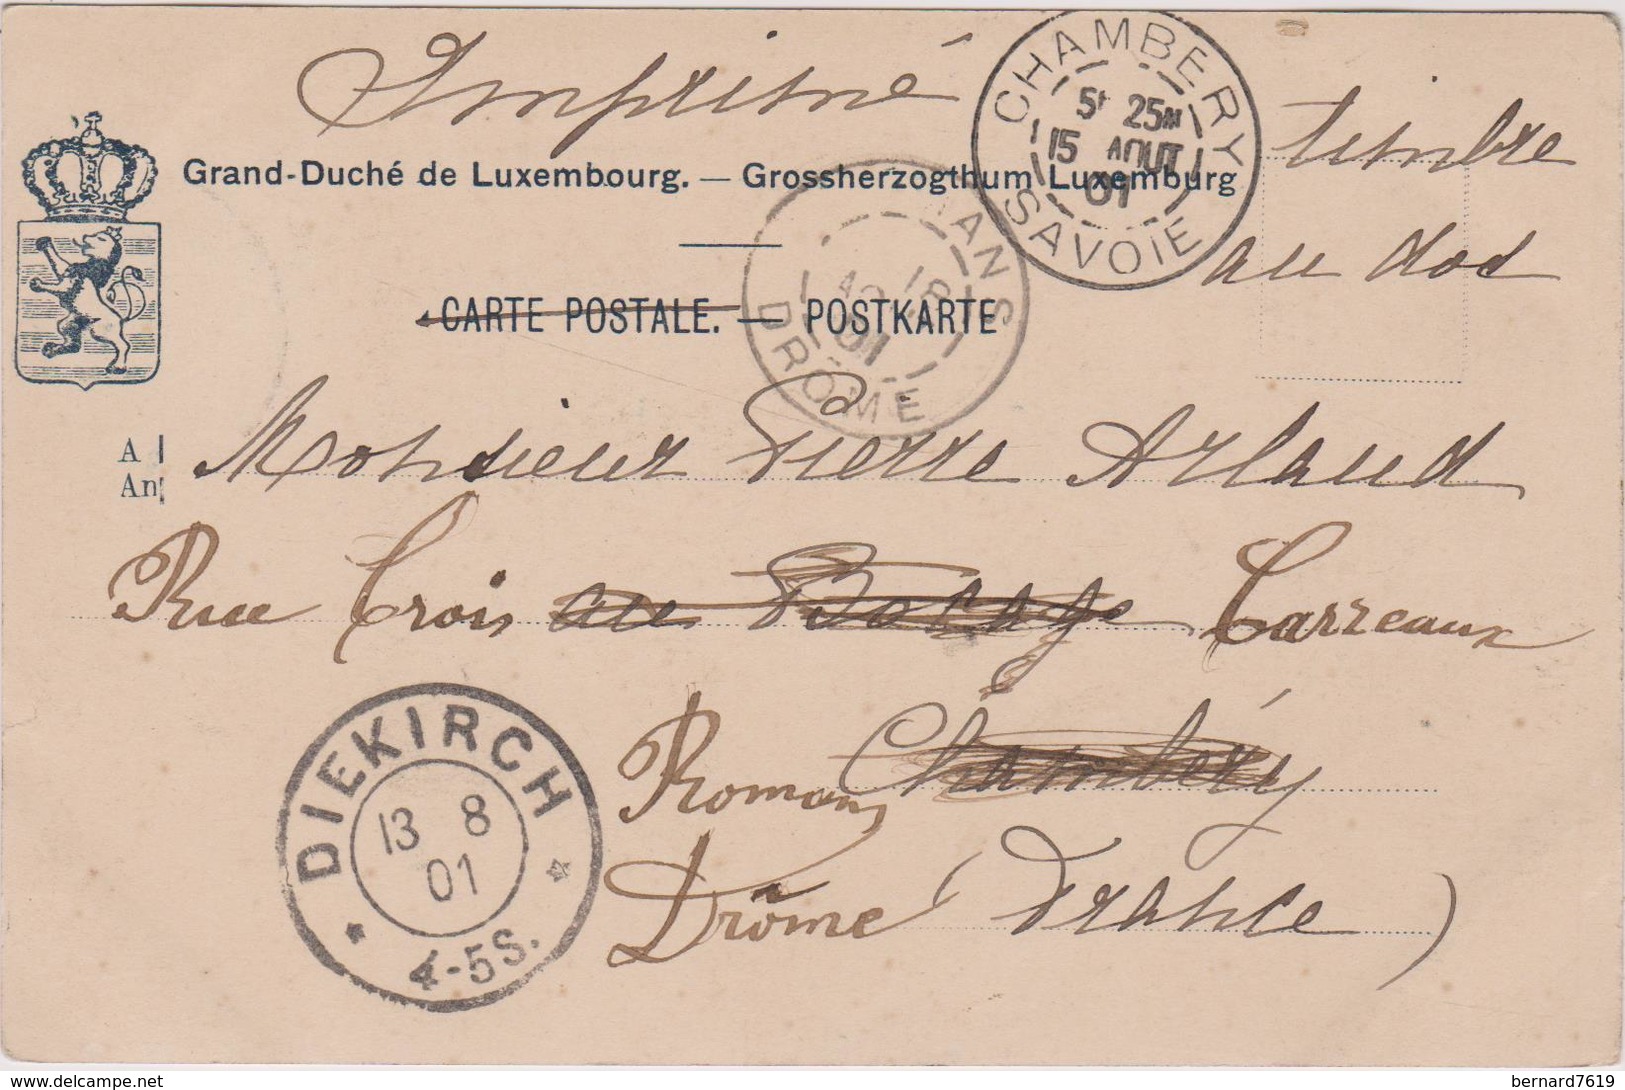 Imprimé
timbre
au dos
Grand-Duché de Luxembourg. — Grossherzogthum Luxemburg
CARTE POSTALE. — POSTKARTE
CHAMBERY
5ᴱ 25ᴹ
15 AOUT
01
SAVOIE
ANS
18
01
DRÔME
A
An
Monsieur Pierre Arlaud
Rue Trois au Bocage Carreaux
Romans Chambéry
Drôme (France)
DIEKIRCH
13 8
01
4-5S.
delcampe.net
bernard7619